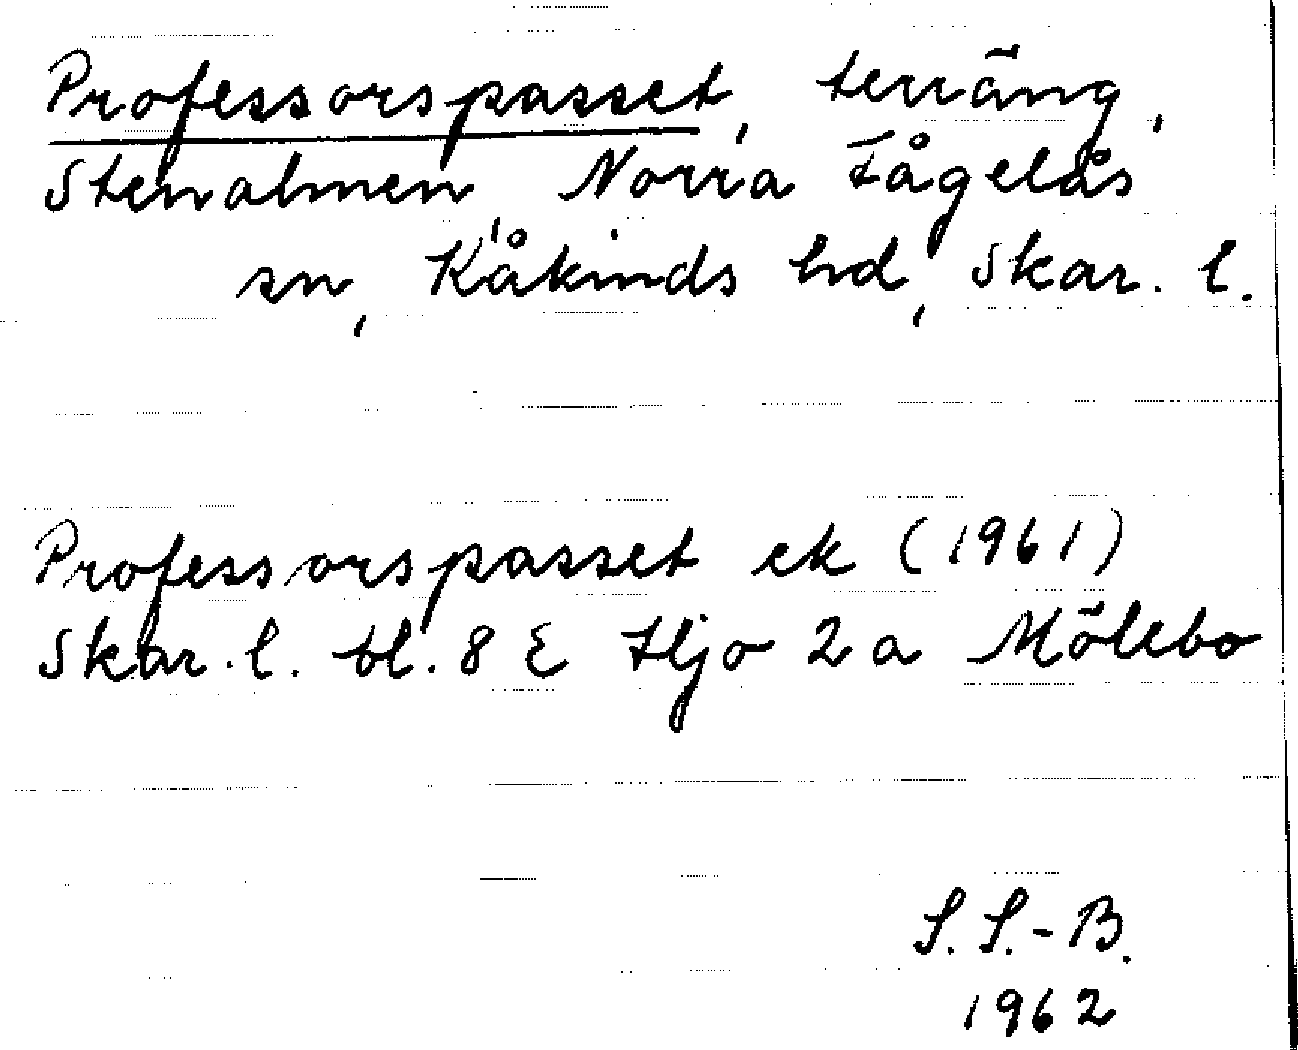 Professorspasset, terräng,
Stenalmen, Norra Fågelås
sn, Kåkinds hd, Skar. l.
Professorspasset ek (1961)
Skar. l. bl. 8 E Hjo 2 a Mölebo
S. S.-B.
1962